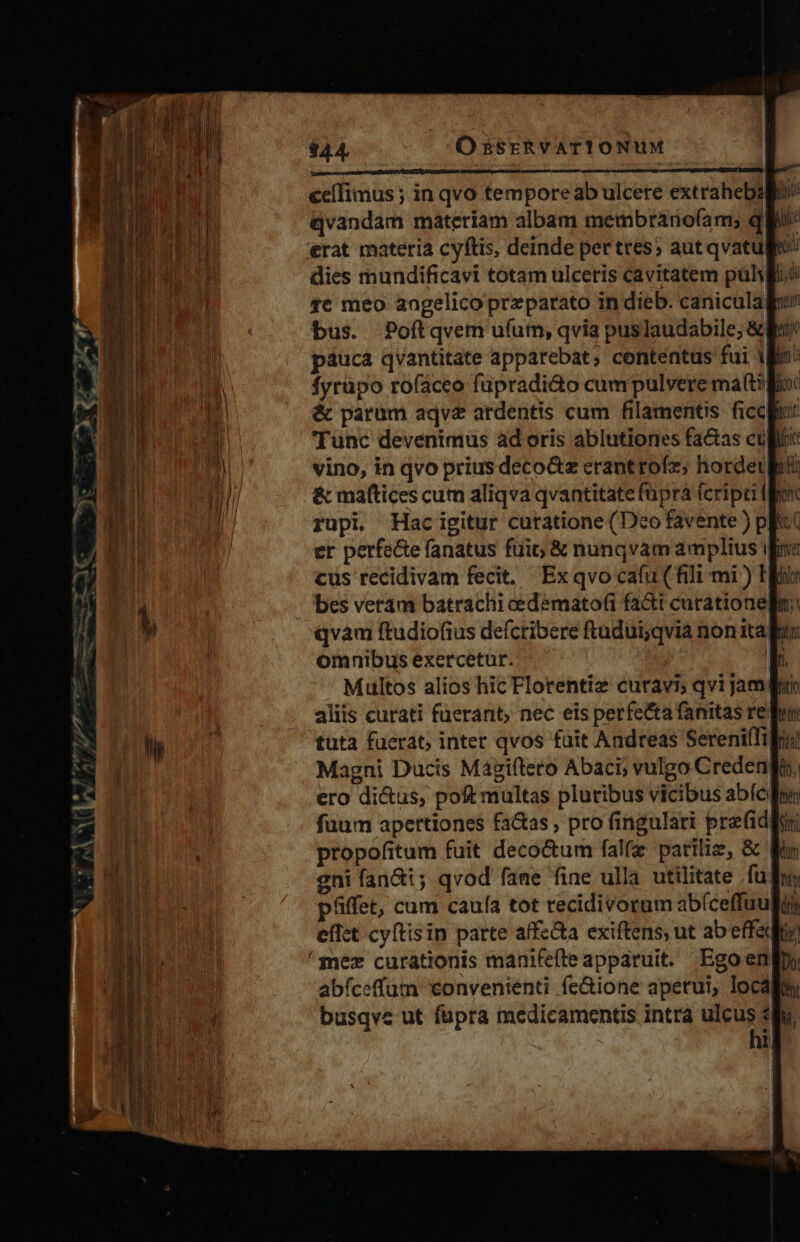 144 OBSERVATIONUM
ceſſimus; in qvo tempore ab ulcere extraheba
qvandam materiam albam membranoſam, q
erat materia cyſtis, deinde per tres, aut qvatu
dies mundificavi totam ulceris cavitatem pulv
re meo angelico præparato in dieb. canicula
bus. Poſt qvem uſum, qvia pus laudabile, &
pauca qvantitate apparebat, contentus fui
ſyrupo roſaceo ſupradicto cum pulvere maſti
& parum aqvæ ardentis cum filamentis ficc
Tunc devenimus ad oris ablutiones factas cu
vino, in qvo prius decoctæ erant roſæ, hordeu
& maſtices cum aliqva qvantitate ſupra ſcripti ſ
rupi. Hac igitur curatione (Deo favente) p
er perfecte ſanatus fuit, & nunqvam amplius
cus recidivam fecit. Ex qvo caſu (fili mi) h
bes veram batrachi œdematoſi facti curatione
qvam ſtudioſius deſcribere ſtudui, qvia non ita
omnibus exercetur.
Multos alios hic Florentiæ curavi, qvi jam
aliis curati fuerant, nec eis perfecta ſanitas re
tuta fuerat, inter qvos fuit Andreas Sereniſſi
Magni Ducis Magiſtero Abaci, vulgo Creden
ero dictus, poſt multas pluribus vicibus abſc
ſuum apertiones factas, pro ſingulari præſid
propoſitum fuit decoctum ſalſæ pariliæ, &
gni ſancti; qvod ſane ſine ulla utilitate ſu
pſiſſet, cum cauſa tot recidivorum abſceſſuu
eſſet cyſtis in parte affecta exiſtens, ut ab effec
meæ curationis manifeſte apparuit. Ego en
abſceſſum convenienti ſectione aperui, loca
busqve ut ſupra medicamentis intra ulcus
hi